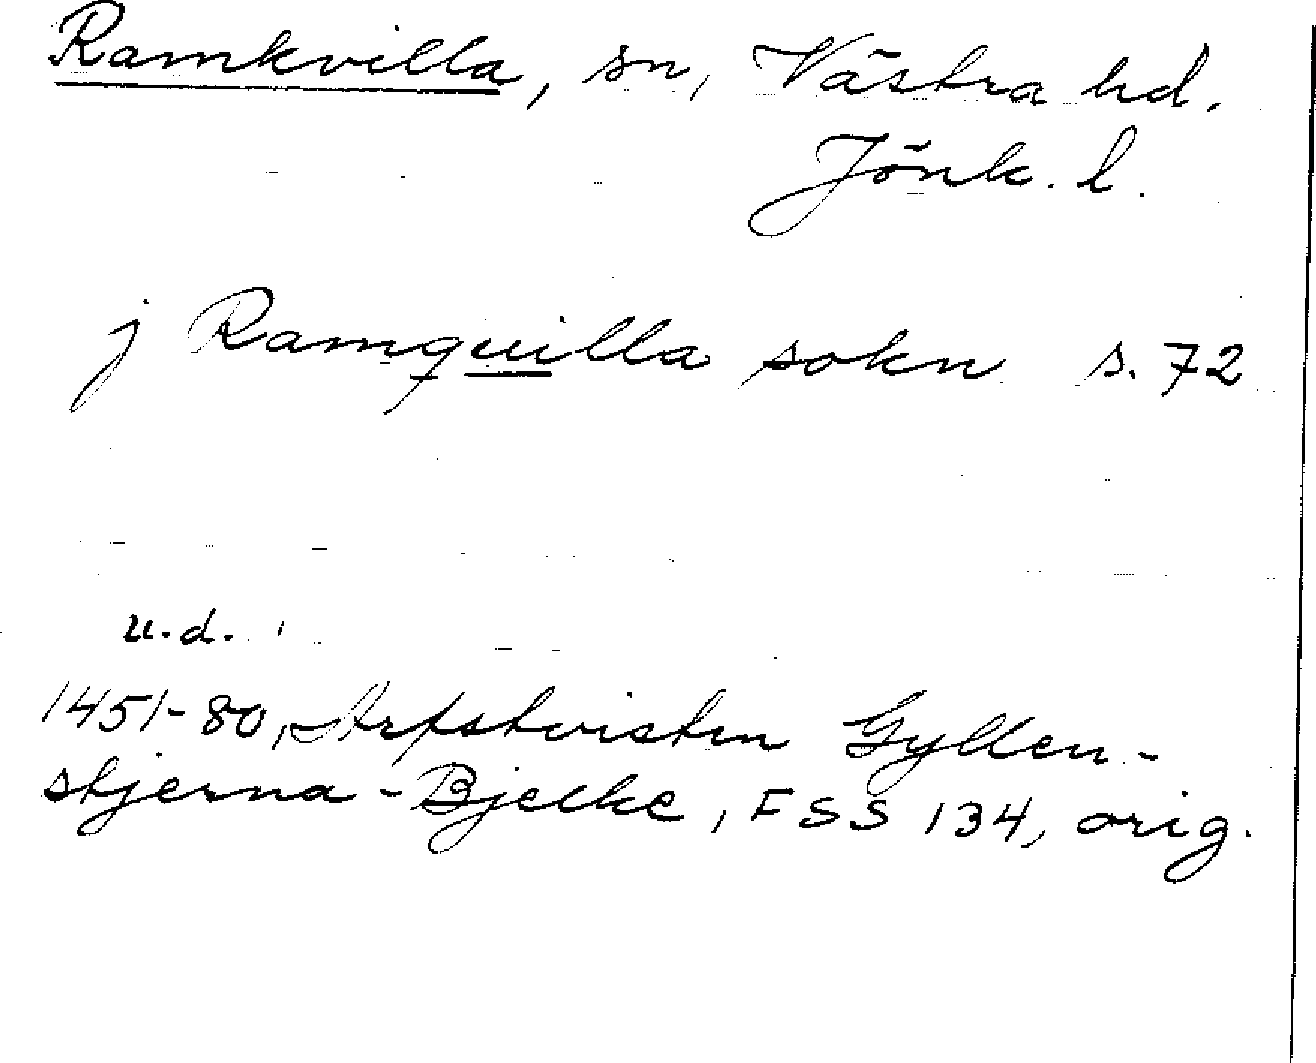 Ramkvilla, sn, Västra hd.
Jönk. l.
j Ramquilla sokn s. 72
u.d.
1451-80, Arfstvisten Gyllen-
stjerna-Bjelke, FSS 134, orig.